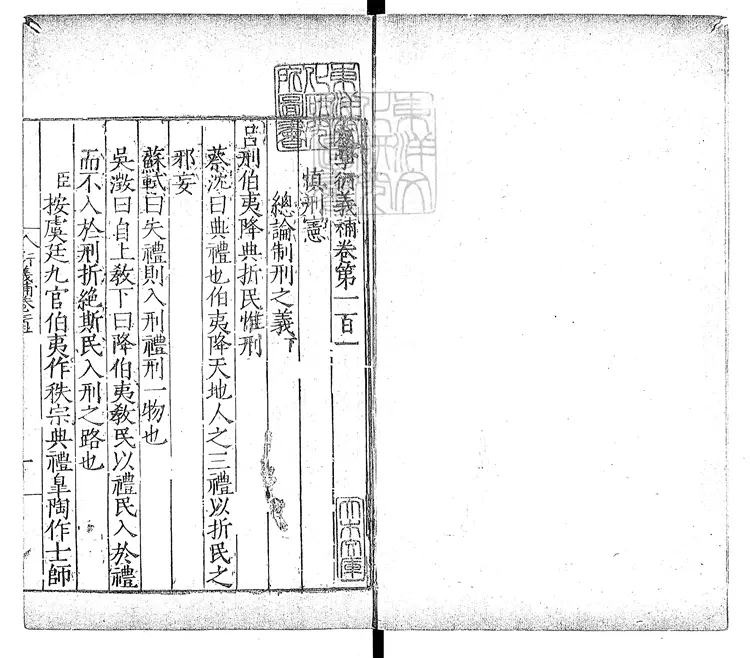 學衍義補卷第一百一
慎刑憲
總論制刑之義下
呂刑伯夷降典折民惟刑
蔡沈曰典禮也伯夷降天地人之三禮以折民之
邪妄
蘇軾曰失禮則入刑禮刑一物也
吳澂曰自上教下曰降伯夷敎民以禮民入於禮
而不入於刑折絶斯民入刑之路也
臣按虞廷九官伯夷作秩宗典禮皐陶作士師